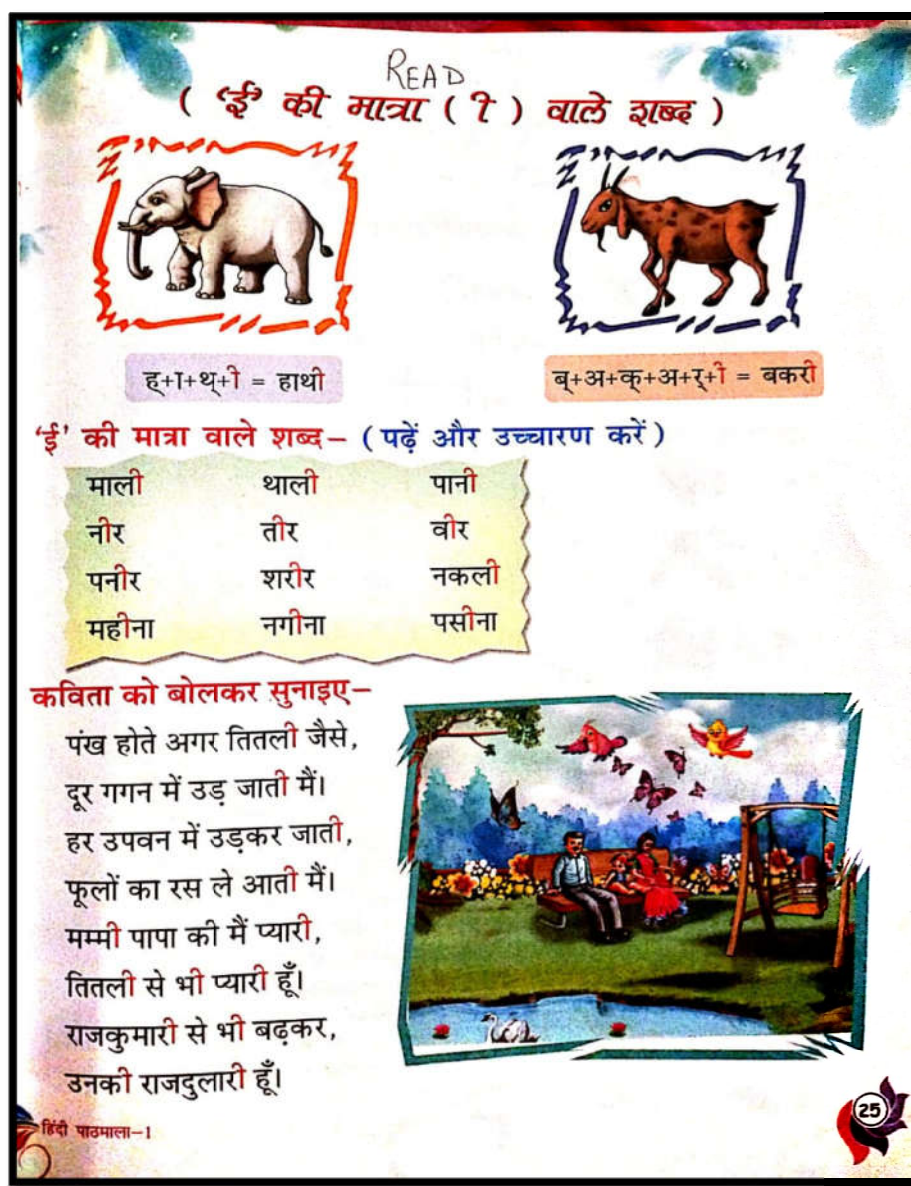 READ
( 'ई' की मात्रा ( ी ) वाले शब्द )
ह्+ा+थ्+ी = हाथी
ब्+अ+क्+अ+र्+ी = बकरी
'ई' की मात्रा वाले शब्द– (पढ़ें और उच्चारण करें)
माली थाली पानी
नीर तीर वीर
पनीर शरीर नकली
महीना नगीना पसीना
कविता को बोलकर सुनाइए–
पंख होते अगर तितली जैसे,
दूर गगन में उड़ जाती मैं।
हर उपवन में उड़कर जाती,
फूलों का रस ले आती मैं।
मम्मी पापा की मैं प्यारी,
तितली से भी प्यारी हूँ।
राजकुमारी से भी बढ़कर,
उनकी राजदुलारी हूँ।
हिंदी पाठमाला–1
25